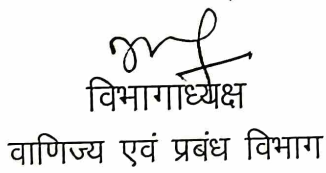 विभागाध्यक्ष
वाणिज्य एवं प्रबंध विभाग